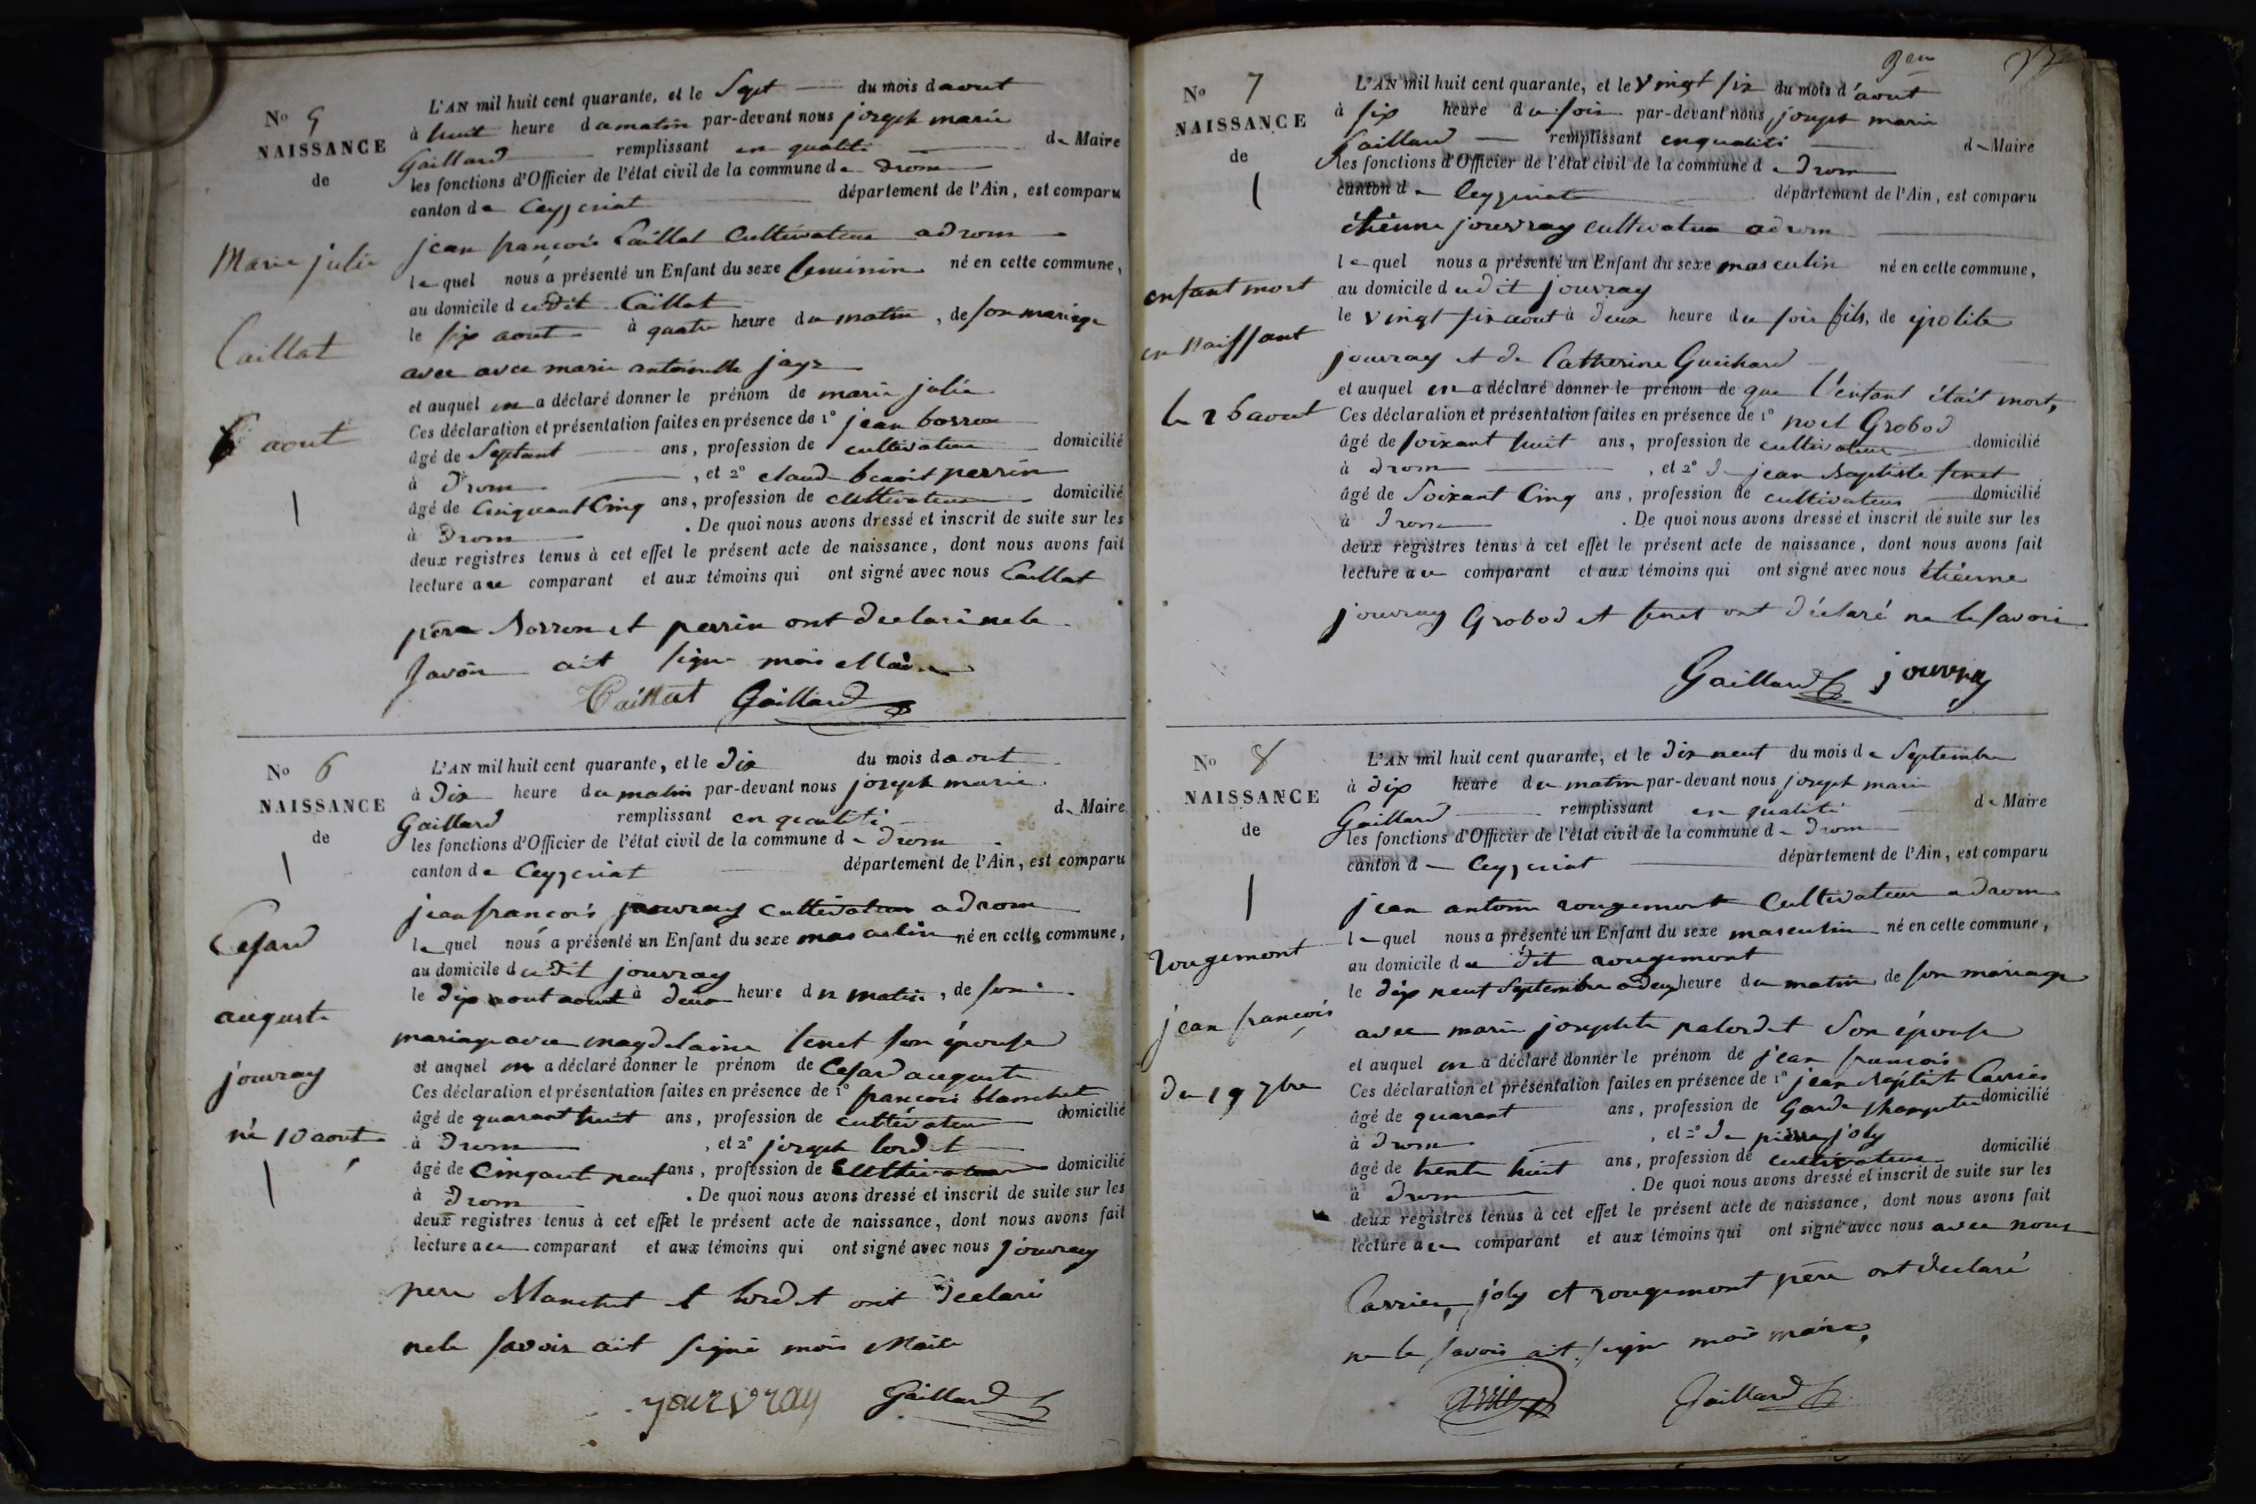 No 5
NAISSANCE
de
Marie julie
Caillat
6 aout
L'AN mil huit cent quarante, et le Sept du mois daout
à huit heure du matin par-devant nous joseph marie
Gaillard remplissant en qualité de Maire
les fonctions d'Officier de l'état civil de la commune de Drom
canton de Ceyzeriat département de l'Ain, est comparu
jean françois Caillat Cultivateur a drom
lequel nous a présenté un Enfant du sexe feminin né en cette commune,
au domicile dudit Caillat
le six aout à quatre heure du matin, de son mariage
avec avec marie antoinette jayr
et auquel on a déclaré donner le prénom de marie julie
Ces déclaration et présentation faites en présence de 1° jean borron
âgé de Septant ans, profession de cultivateur domicilié
à Drom, et 2° claude benoit perrin
âgé de Cinquant Cinq ans, profession de cultivateur domicilié
à Drom. De quoi nous avons dressé et inscrit de suite sur les
deux registres tenus à cet effet le présent acte de naissance, dont nous avons fait
lecture au comparant et aux témoins qui ont signé avec nous Caillat
père Borron et perrin ont declaré ne le
Savoir ait signe moi Maire
Caillat Gaillard
No 6
NAISSANCE
de
Cesard
auguste
jouvray
né 10 aout
L'AN mil huit cent quarante, et le dix du mois daout
à Dix heure du matin par-devant nous joseph marie
Gaillard remplissant en qualité de Maire
les fonctions d'Officier de l'état civil de la commune de Drom
canton de Ceyzeriat département de l'Ain, est comparu
jean françois jouvray cultivateur a drom
lequel nous a présenté un Enfant du sexe masculin né en cette commune,
au domicile dudit jouvray
le dix aout aout à deux heure du matin, de son
mariage avec magdelaine tenet son épouse
et auquel on a déclaré donner le prénom de Cesard auguste
Ces déclaration et présentation faites en présence de 1° francois blanchet
âgé de quarant huit ans, profession de cultivateur domicilié
à Drom, et 2° joseph bordet
âgé de Cinqant neuf ans, profession de Cultivateur domicilié
à Drom. De quoi nous avons dressé et inscrit de suite sur les
deux registres tenus à cet effet le présent acte de naissance, dont nous avons fait
lecture au comparant et aux témoins qui ont signé avec nous jouvray
pere Blanchet et bordet ont declaré
ne le savoir ait signé moi Maire
jouvray Gaillard
No 7
NAISSANCE
de
enfant mort
en naissant
le 26 aout
L'AN mil huit cent quarante, et le vingt six du mois d'aout
à six heure du soir par-devant nous joseph marie
Gaillard remplissant en qualité de Maire
les fonctions d'Officier de l'état civil de la commune de Drom
canton de Ceyzeriat département de l'Ain, est comparu
étienne jouvray cultivateur a drom
lequel nous a présenté un Enfant du sexe masculin né en cette commune,
au domicile dudit jouvray
le vingt six aout à deux heure du soir fils, de ypolite
jouvray et de Catherine Guichard
et auquel on a déclaré donner le prénom de que l'enfant était mort,
Ces déclaration et présentation faites en présence de 1° noel Grobod
âgé de soixant huit ans, profession de cultivateur domicilié
à drom, et 2° de jean Baptiste tenet
âgé de Soixant Cinq ans, profession de cultivateur domicilié
à Drom. De quoi nous avons dressé et inscrit de suite sur les
deux registres tenus à cet effet le présent acte de naissance, dont nous avons fait
lecture au comparant et aux témoins qui ont signé avec nous étienne
jouvray Grobod et tenet ont déclaré ne le savoir
Gaillard jouvray
No 8
NAISSANCE
de
rougemont
jean françois
du 19 7bre
L'AN mil huit cent quarante, et le dix neuf du mois de Septembre
à dix heure du matin par-devant nous joseph marie
Gaillard remplissant en qualité de Maire
les fonctions d'Officier de l'état civil de la commune de Drom
canton de Ceyzeriat département de l'Ain, est comparu
jean antoine rougemont Cultivateur a drom
lequel nous a présenté un Enfant du sexe masculin né en cette commune,
au domicile du dit rougemont
le dix neuf Septembre a deux heure du matin, de son mariage
avec marie josephte palordet Son épouse
et auquel on a déclaré donner le prénom de jean francois
Ces déclaration et présentation faites en présence de 1° jean Baptiste Carrier
âgé de quarant ans, profession de Garde champetre domicilié
à drom, et 2° de pierre joly
âgé de trente huit ans, profession de cultivateur domicilié
à Drom. De quoi nous avons dressé et inscrit de suite sur les
deux registres tenus à cet effet le présent acte de naissance, dont nous avons fait
lecture au comparant et aux témoins qui ont signé avec nous avec nous
Carrier, joly et rougemont père ont declaré
ne le savoir ait signe moi maire,
Gaillard